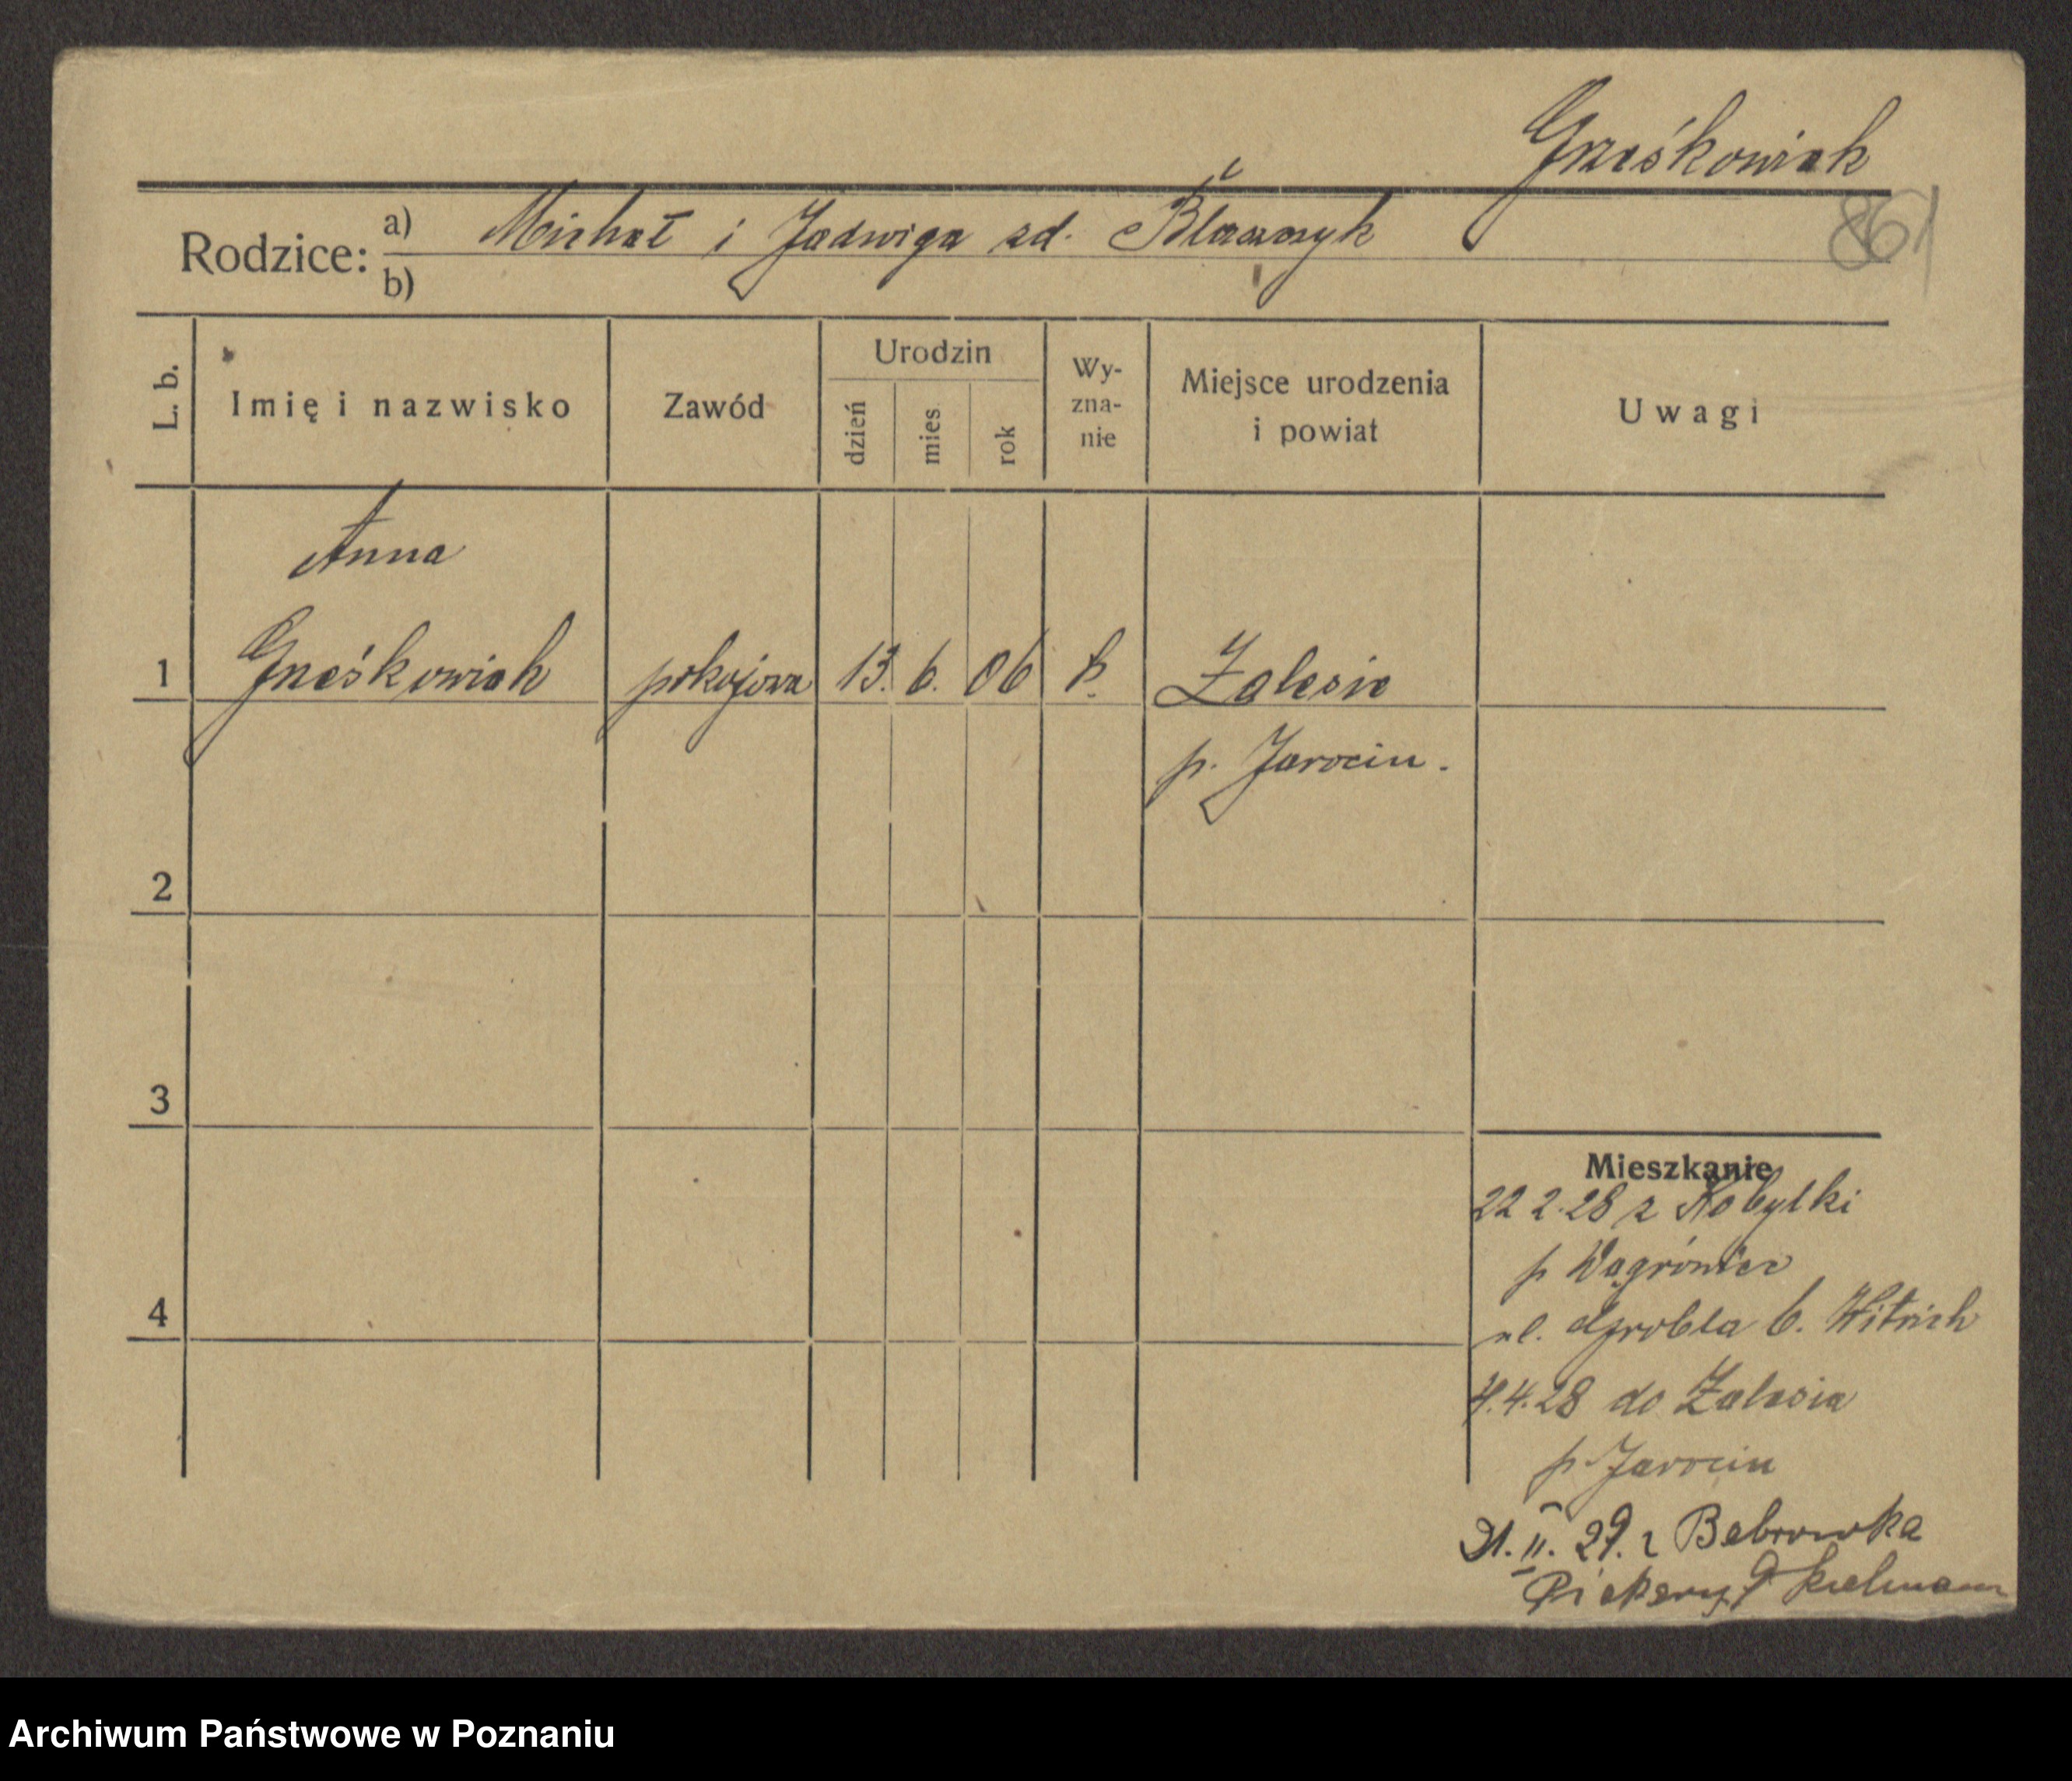 Grześkowiak
861
Rodzice: a) Michał i Jadwiga zd. Błaszczyk
b)
L. b.
Imię i nazwisko
Zawód
Urodzin
dzień
mies.
rok
Wy-
zna-
nie
Miejsce urodzenia
i powiat
Uwagi
Anna
1 Grześkowiak pokojowa 13. 6. 06 k. Zalesie
p. Jarocin.
2
3
4
Mieszkanie
22 2.28 z Kobylki
p Wągrówiec
ul. Grobla 6. Witrich
4.4.28 do Zalesia
p. Jarocin
21. II. 29. z Bebrowka
Piekary 9